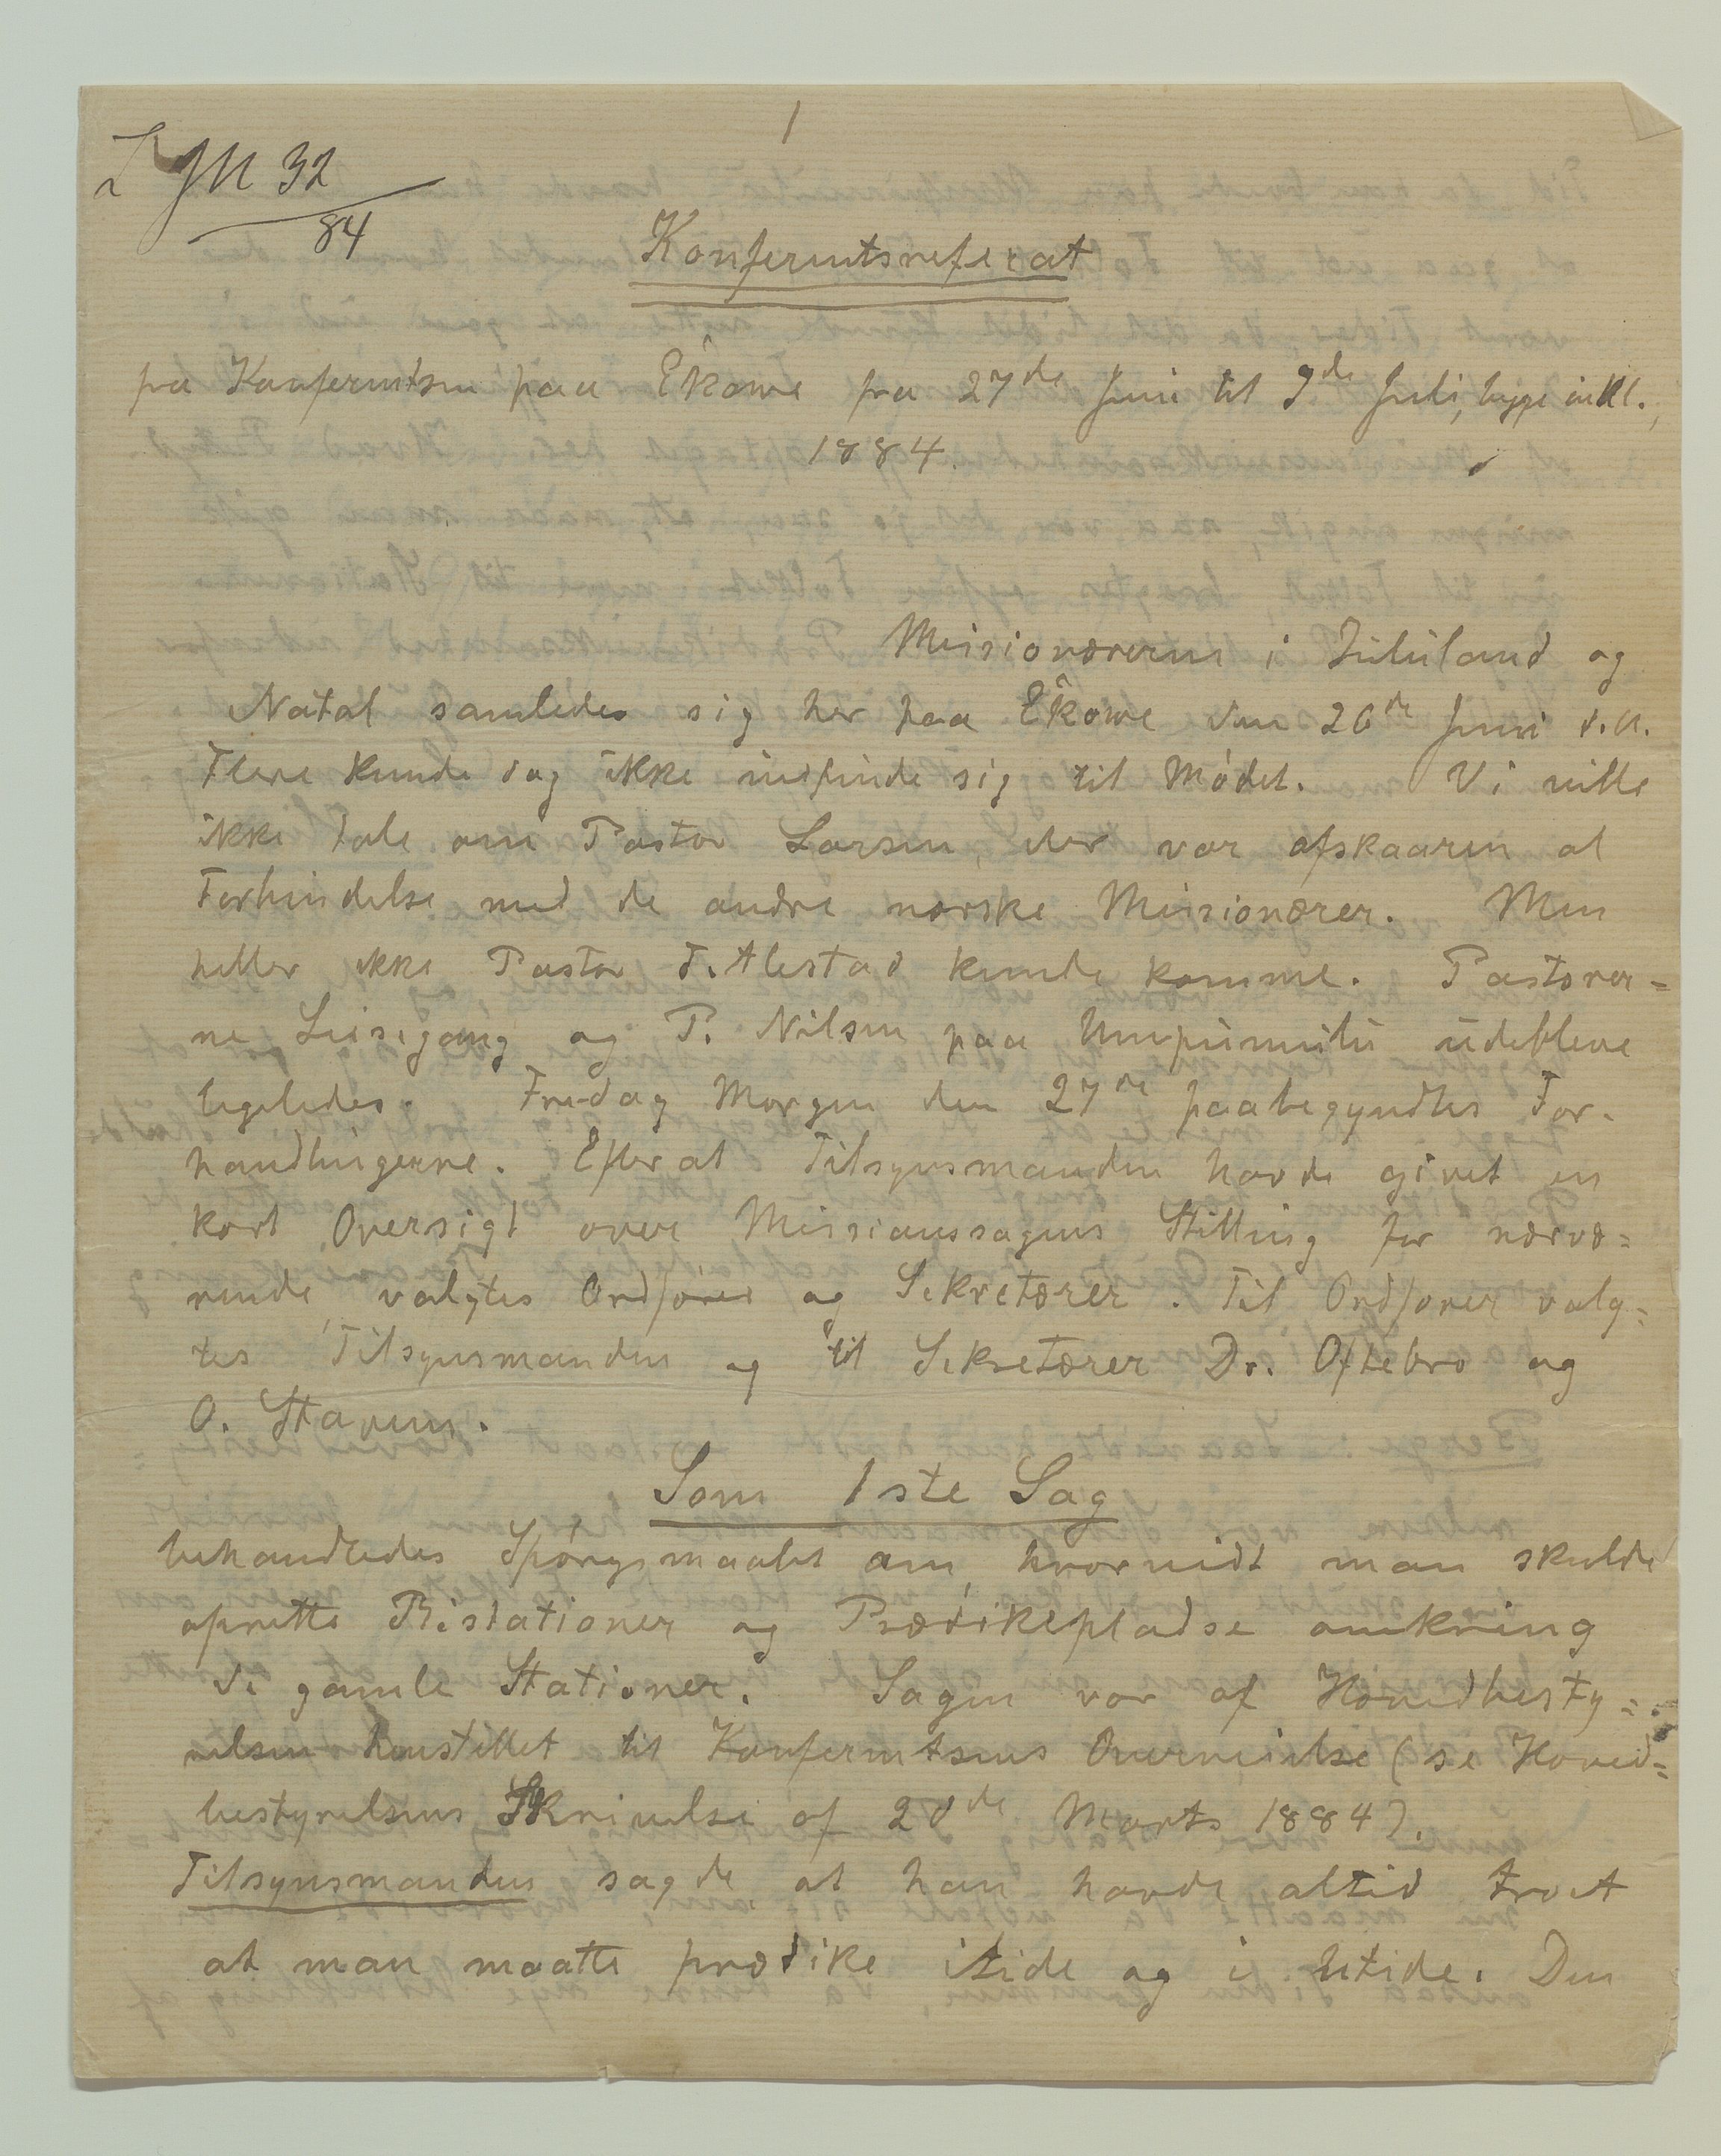 1
JN 32
84
Konferentsreferat
fra Konferentsen paa Ekowe fra 27de Juni til 9de Juli, begge inkl.,
1884.
Missionærerne i Zululand og
Natal samledes sig her paa Ekowe den 26de Juni d.A.
Flere kunde dog ikke indfinde sig til Mødet. Vi ville
ikke tale om Pastor Larsen, der var afskaaren al
Forbindelse med de andre norske Missionærer. Men
heller ikke Pastor T. Ålestad kunde komme. Pastorer-
ne Leisegang og P. Nilsen paa Umpumulu udebleve
ligeledes. Fredag Morgen den 27de paabegyndtes For-
handlingerne. Efterat Tilsynsmanden havde givet en
kort Oversigt over Missionssagens Stilling for nærvæ-
rende, valgtes Ordfører og Sekretærer. Til Ordfører valg-
tes Tilsynsmanden og til Sekretærer Dr. Oftebro og
O. Stavem.
Som 1ste Sag
behandledes Spørgsmaalet om, hvorvidt man skulde
oprette Bistationer og Prædikepladse omkring
de gamle Stationer. Sagen var af Hovedbesty-
relsen henstillet til Konferentsens Overveielse (se Hoved-
bestyrelsens Skrivelse af 20de Marts 1884).
Tilsynsmanden sagde at han havde altid troet
at man maatte prædike itide og i Utide. Den